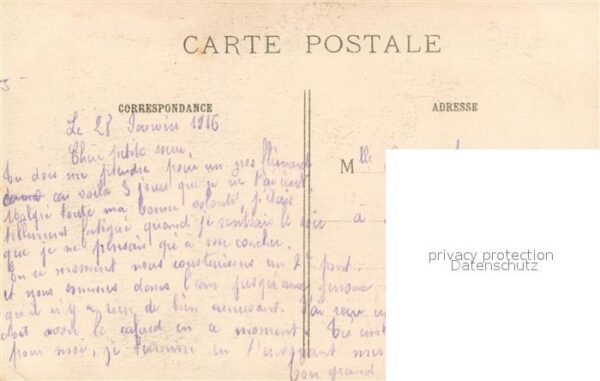 CARTE POSTALE
CORRESPONDANCE
ADRESSE
Le 28 Janvier 1916
Chère petite soeur,
Tu dois me prendre pour un gros flemard
car voilà 3 jours que je ne t'ai écrit
Malgré toute ma bonne volonté, j'étais
tellement fatigué quand je rentrais le soir
que je ne pensais qu'à me coucher.
En ce moment nous construisons un 2e pont
et nous sommes dans l'eau jusqu'aux genoux,
qu'il n'y a rien de bien amusant. J'ai reçu
doit avoir le cafard en ce moment.
pour moi, je termine en t'envoyant mes
Ton grand
Mlle
a
privacy protection
Datenschutz